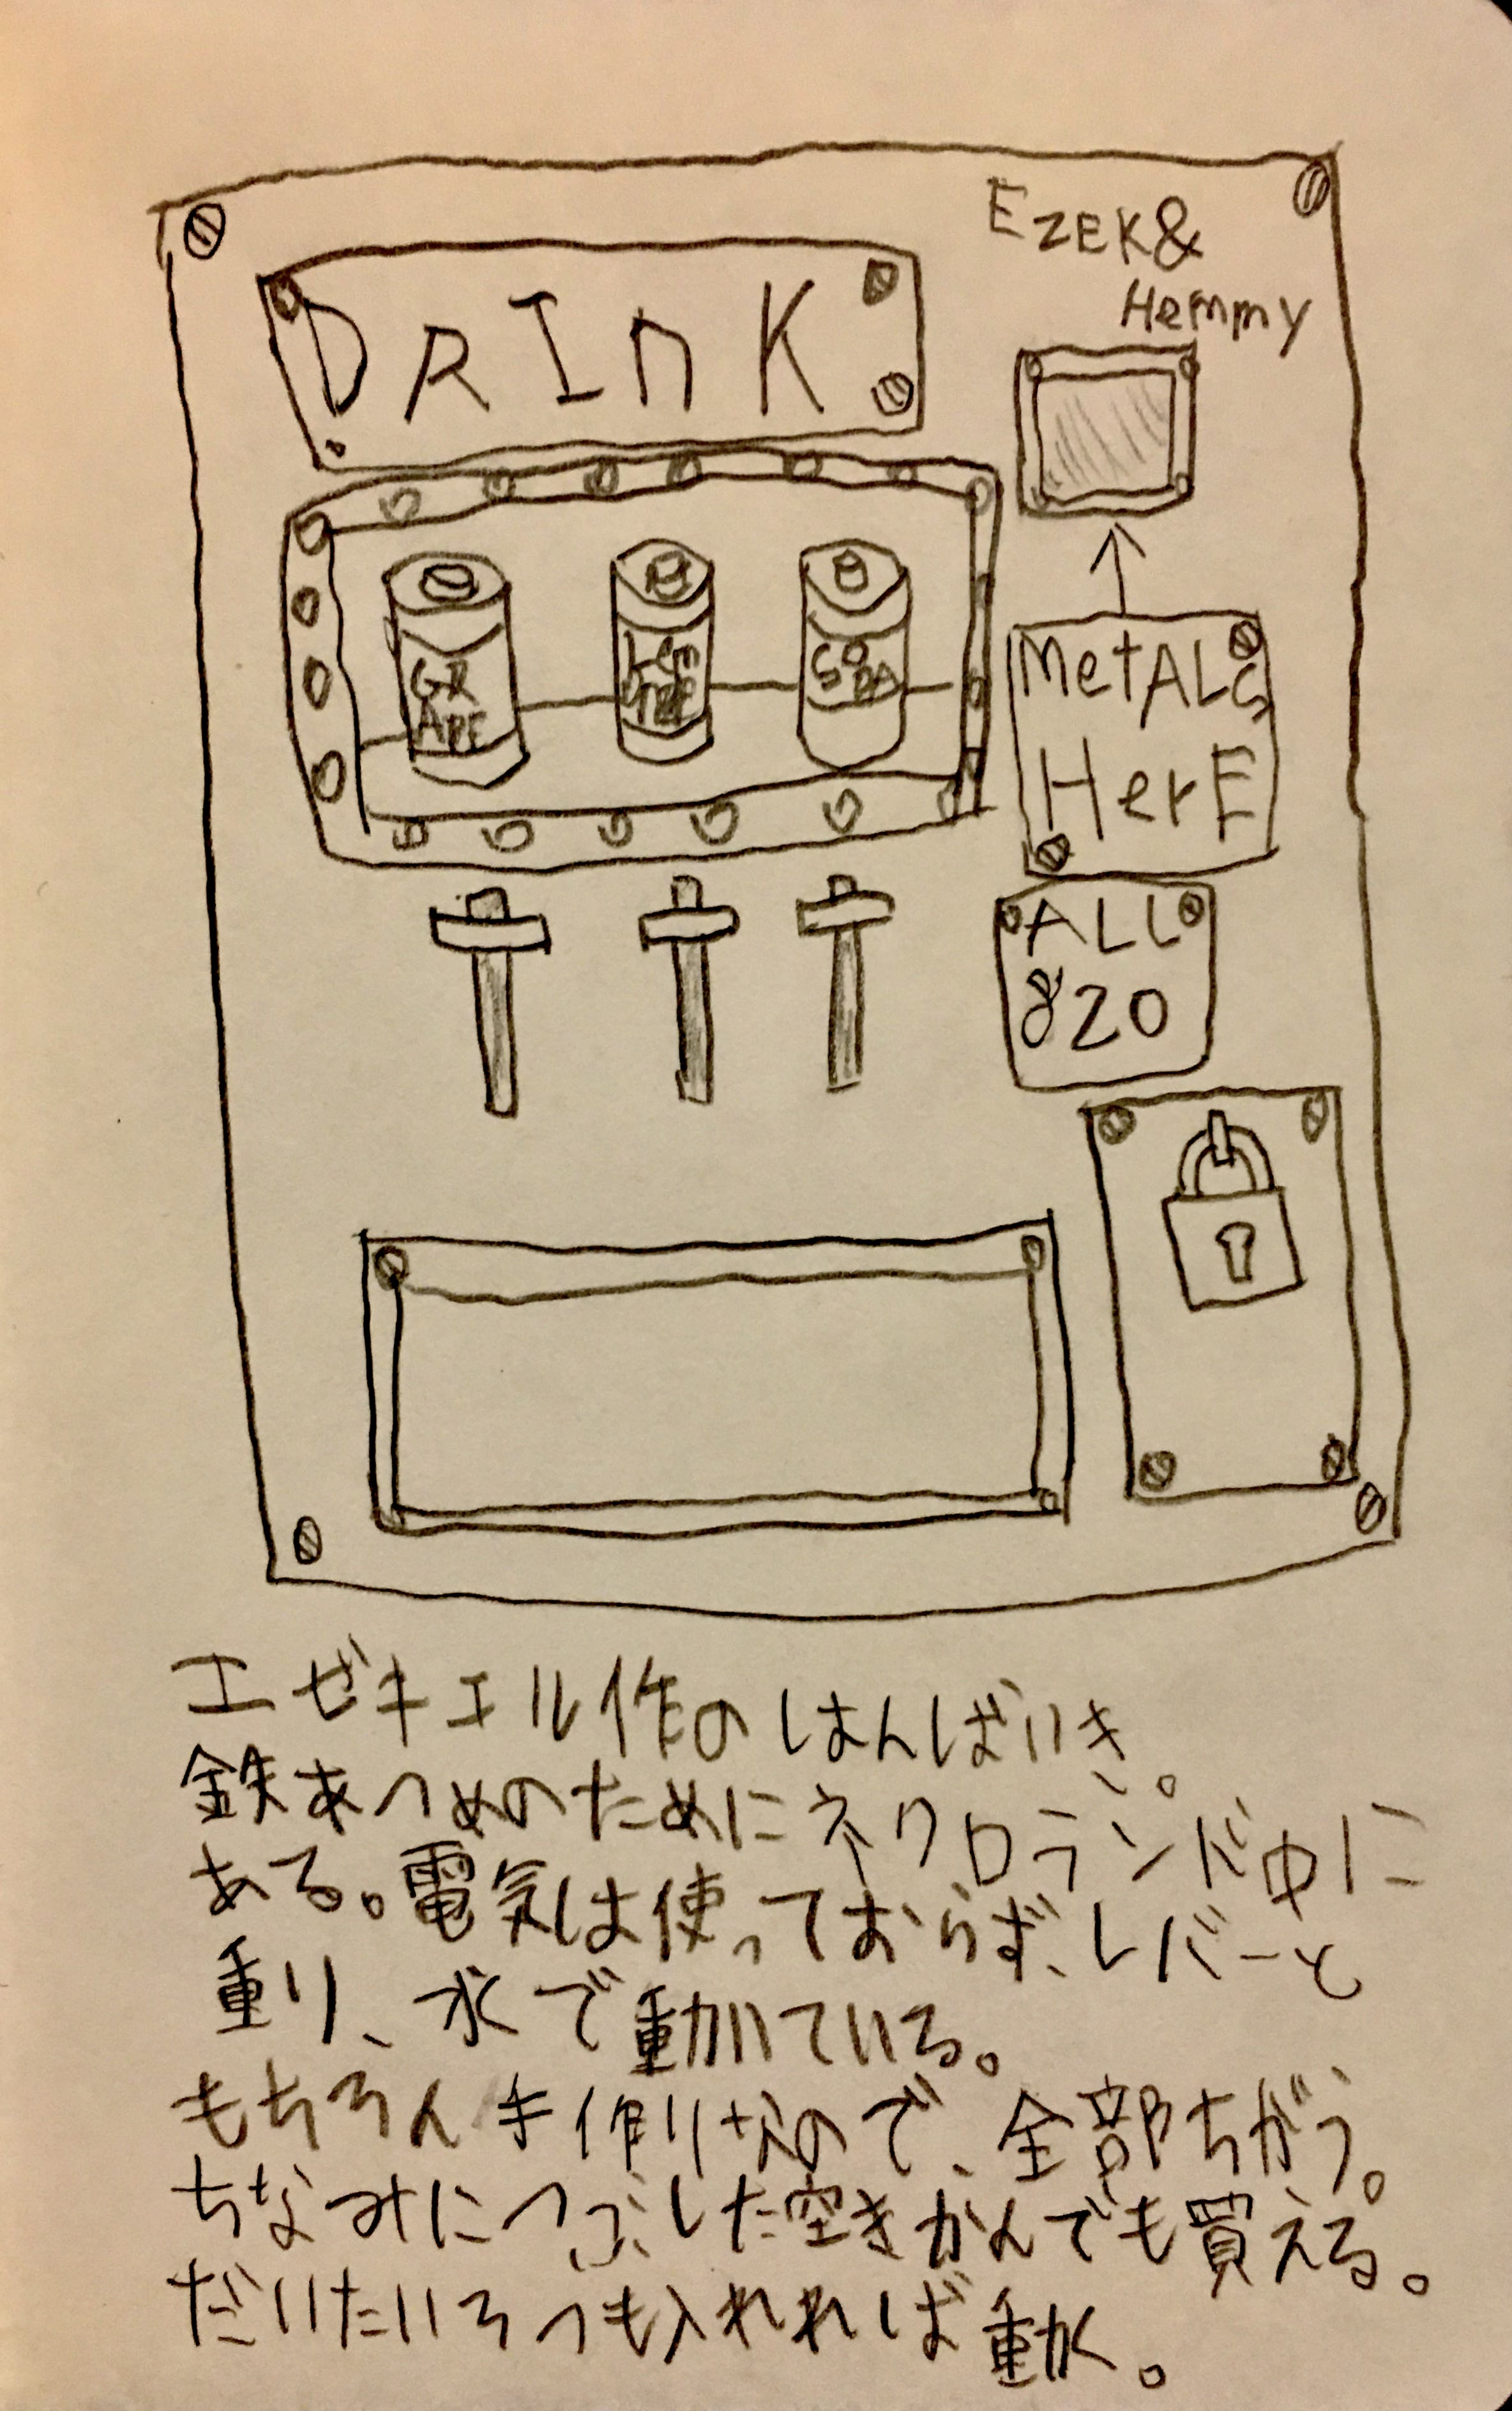 EZEK&
Hemmy
DRInK
GR
APE
SO
DA
MetALS
HerE
ALL
820
エゼキエル作のはんばいき。
鉄あつめのためにネクロランド中に
ある。電気は使っておらず、レバーと
重り、水で動いている。
もちろん手作りなので、全部ちがう。
ちなみにつぶした空きかんでも買える。
だいたい3つも入れれば動く。